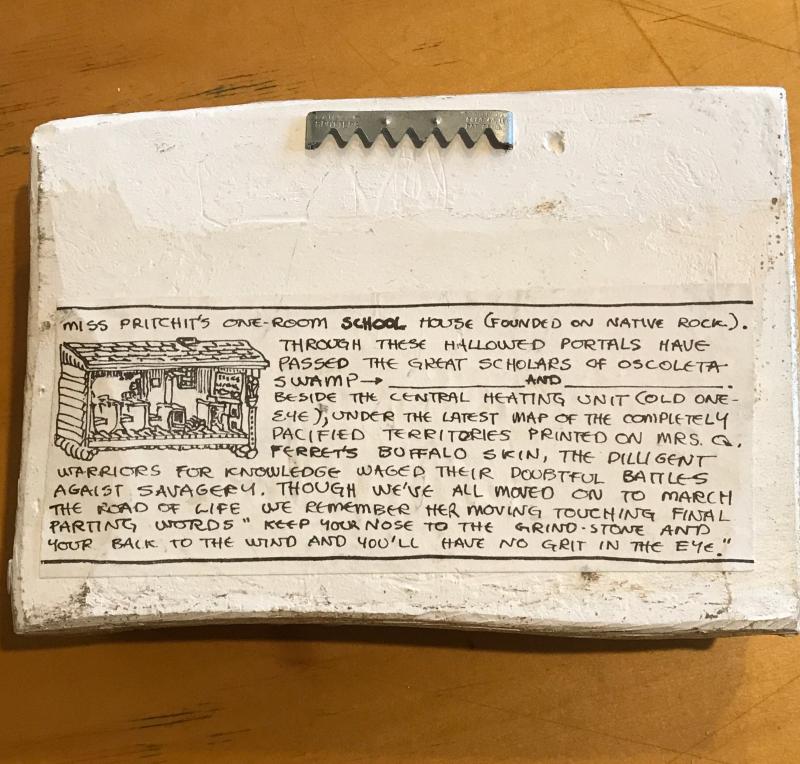 MISS PRITCHIT'S ONE-ROOM SCHOOL HOUSE (FOUNDED ON NATIVE ROCK.).
THROUGH THESE HALLOWED PORTALS HAVE
PASSED THE GREAT SCHOLARS OF OSCOLETA
SWAMP→ ____________ AND ____________.
BESIDE THE CENTRAL HEATING UNIT (OLD ONE-
EYE), UNDER THE LATEST MAP OF THE COMPLETELY
PACIFIED TERRITORIES PRINTED ON MRS. Q.
FERRET'S BUFFALO SKIN, THE DILLIGENT
WARRIORS FOR KNOWLEDGE WAGED THEIR DOUBTFUL BATTLES
AGAIST SAVAGERY. THOUGH WE'VE ALL MOVED ON TO MARCH
THE ROAD OF LIFE WE REMEMBER HER MOVING TOUCHING FINAL
PARTING WORDS " KEEP YOUR NOSE TO THE GRIND-STONE AND
YOUR BACK TO THE WIND AND YOU'LL HAVE NO GRIT IN THE EYE."